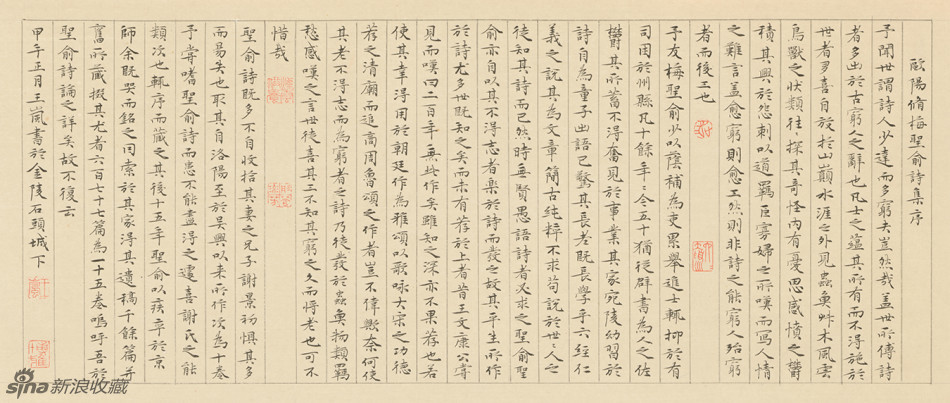 歐陽脩梅聖俞詩集序
予聞世謂詩人少達而多窮夫豈然哉蓋世所傳詩
者多出於古窮人之辭也凡士之蘊其所有而不得施於
世者多喜自放於山巔水涯之外見蟲魚艸木風雲
鳥獸之狀類往々探其奇怪內有憂思感憤之鬱
積其興於怨刺以道羈臣寡婦之所嘆而寫人情
之難言蓋愈窮則愈工然則非詩之能窮人殆窮
者而後工也
予友梅聖俞少以蔭補為吏累舉進士輒抑於有
司困於州縣凡十餘年々今五十猶從辟書為人之佐
鬱其所蓄不得奮見於事業其家宛陵幼習於
詩自為童子出語已驚其長老既長學乎六經仁
義之說其為文章簡古純粹不求苟說於世々人之
徒知其詩而已然時無賢愚語詩者必求之聖俞聖
俞亦自以其不得志者樂於詩而發之故其平生所作
於詩尤多世既知之矣而未有荐於上者昔王文康公嘗
見而嘆曰二百年無此作矣雖知之深亦不果荐也若
使其幸得用於朝廷作為雅頌以歌咏大宋之功德
荐之清廟而追商周魯頌之作者豈不偉歟奈何使
其老不得志而為窮者之詩乃徒發於蟲魚物類羈
愁感嘆之言世徒喜其工不知其窮之久而將老也可不
惜哉
聖俞詩既多不自收拾其妻之兄子謝景初懼其多
而易失也取其自洛陽至於吳興以來所作次為十卷
予嘗嗜聖俞詩而患不能盡得之遽喜謝氏之能
類次也輒序而藏之其後十五年聖俞以疾卒於京
師余既哭而銘之因索於其家得其遺稿千餘篇并
舊所藏掇其尤者六百七十七篇為一十五卷嗚呼吾於
聖俞詩論之詳矣故不復云
甲午正月王嵐書於金陵石頭城下
sina新浪收藏